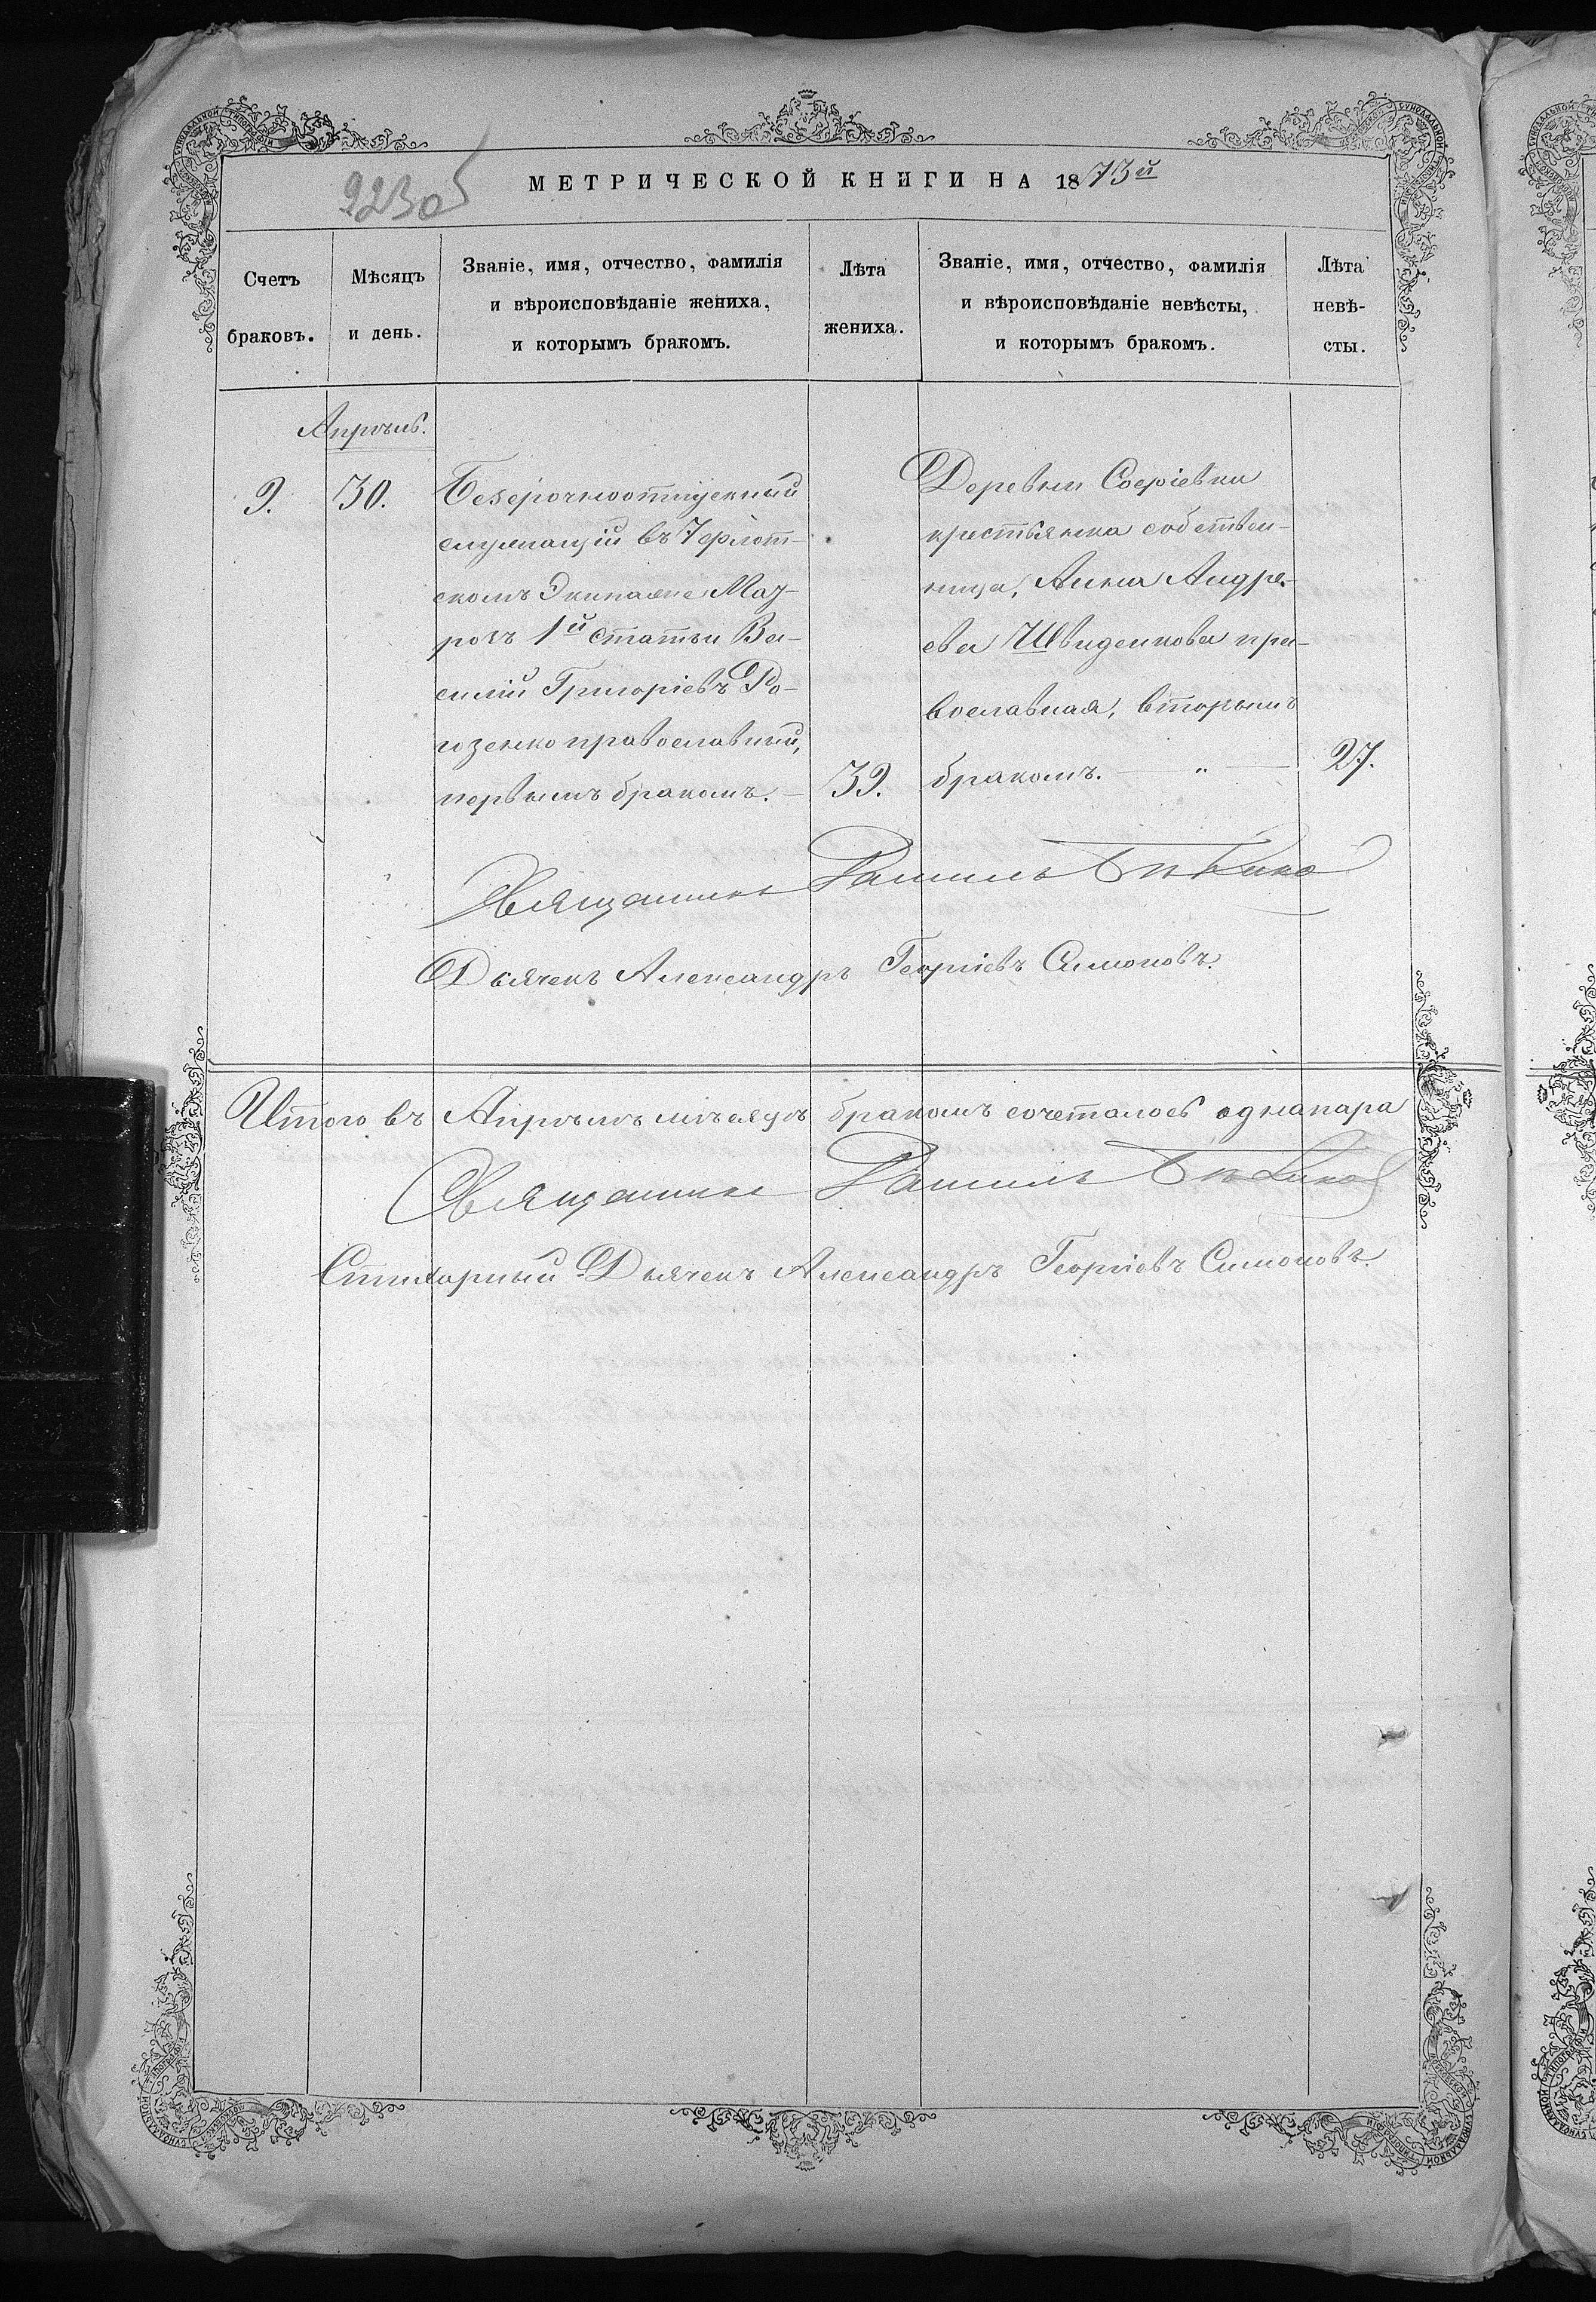 МЕТРИЧЕСКОЙ КНИГИ НА 1873й
9230б
Счетъ браковъ.
Мѣсяцъ и день.
Званіе, имя, отчество, фамилія
и вѣроисповѣданіе жениха,
и которымъ бракомъ.
Лѣта жениха.
Званіе, имя, отчество, фамилія
и вѣроисповѣданіе невѣсты,
и которымъ бракомъ.
Лѣта невѣ-
сты.
Апрѣль.
9.
30.
Безсрочноотпускный
служащій въ 7 флот-
скомъ Экипаже Мат-
розъ 1й статьи Ва-
силій Григоріевъ Ро-
гозенко православный,
первымъ бракомъ.
39.
Деревни Софіевки
крестьянка собствен-
ница, Анна Андре-
ева Швиденкова пра-
вославная, вторымъ
бракомъ. — „ —
27.
Священникъ Даниилъ
Дьячекъ Александръ Георгіевъ Симоновъ.
Итого въ Апрѣлѣ мѣсяцѣ бракомъ сочеталось одна пара
Священникъ Даниилъ
Стихарный Дьячекъ Александръ Георгіевъ Симоновъ.